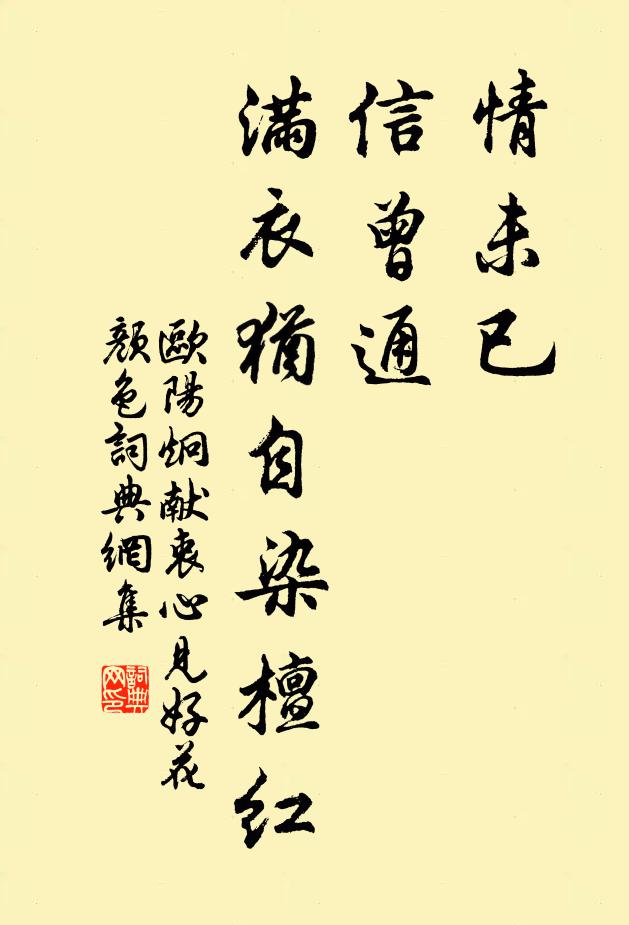 情未已
信曾通
滿衣猶自染檀紅
歐陽炯献衷心見好花
顏色詞典網集
詞典網印